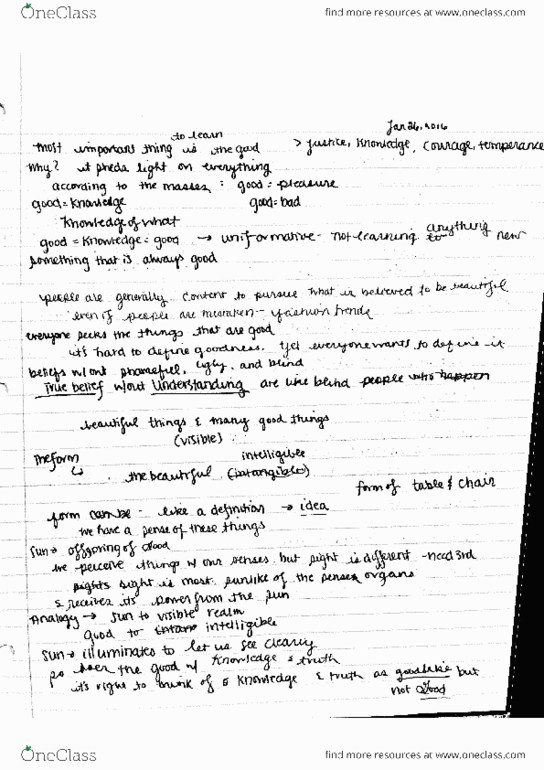 OneClass
find more resources at www.oneclass.com
Jan 26, 2016
to learn
most important thing is the good > justice, knowledge, courage, temperance
Why? it sheds light on everything
according to the masses : good = pleasure
good = knowledge good = bad
knowledge of what
good = knowledge = good → uniformative - not learning anything new
something that is always good
people are generally content to pursue what is believed to be beautiful
even if people are mistaken - fashion trends
everyone seeks the things that are good
it's hard to define goodness. Yet everyone wants to define it
beliefs w/out shameful, ugly, and blind
True belief w/out Understanding are like blind people who happen
beautiful things & many good things
(visible)
The form intelligible
↳ the beautiful (intangible)
form of table & chair
form can be - like a definition → idea
we have a sense of these things
Sun → offspring of Good
we perceive things w our senses but sight is different - need 3rd
sights sight is most sunlike of the senses organs
& receives its power from the sun
Analogy → sun to visible realm
good to intelligible
Sun → illuminates to let us see clearly
so does the good w/ knowledge & truth
it's right to think of knowledge & truth as goodlike but
not Good
OneClass
find more resources at www.oneclass.com